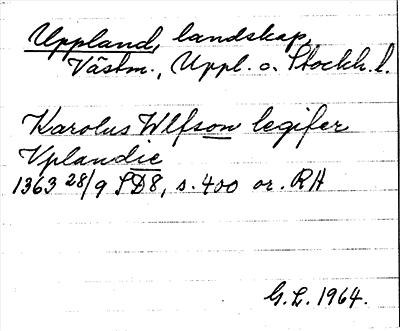 Uppland, landskap,
Västm., Uppl. o. Stockh. l.
Karolus Wlfson legifer
Vplandie
1363 28/9 SD8, s. 400 or. RA
G.L. 1964.